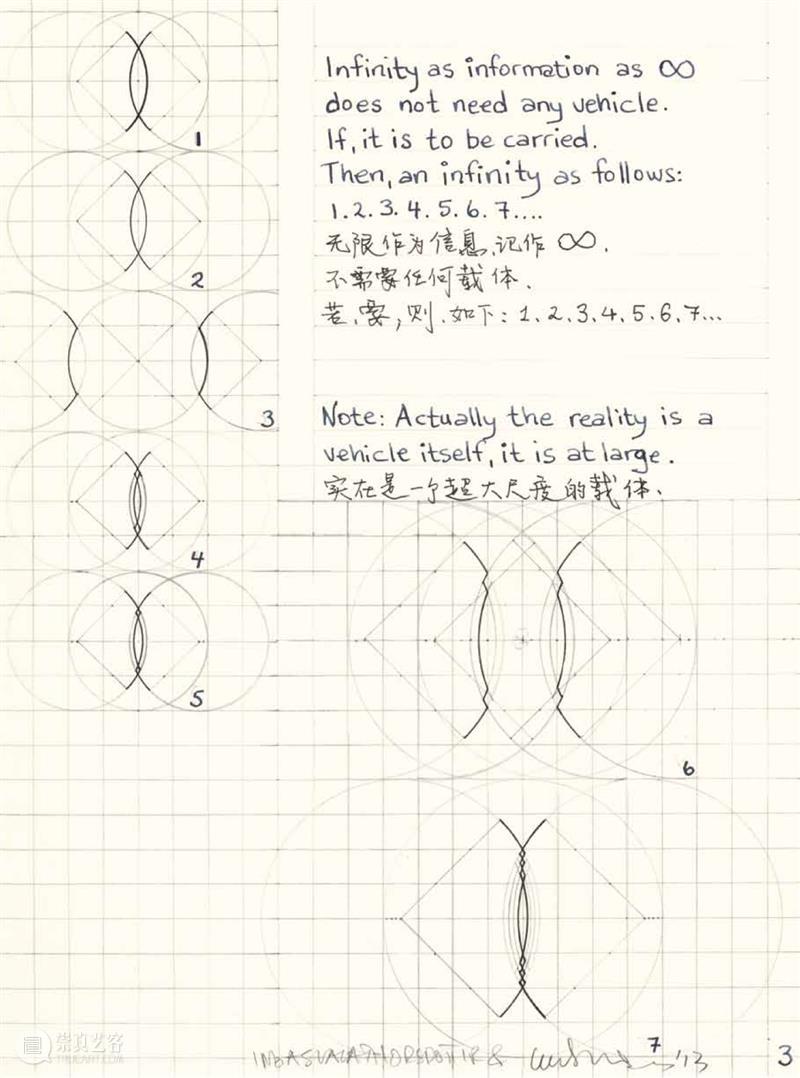 Infinity as information as ∞
does not need any vehicle.
If, it is to be carried.
Then, an infinity as follows:
1.2.3.4.5.6.7....
无限作为信息,记作∞.
不需要任何载体.
若、要,则.如下:1、2、3、4、5、6、7...
Note: Actually the reality is a
vehicle itself, it is at large.
实在是一个超大尺度的载体、
1
2
3
4
5
6
7
'13
3
崇真艺客
TRUEART.COM